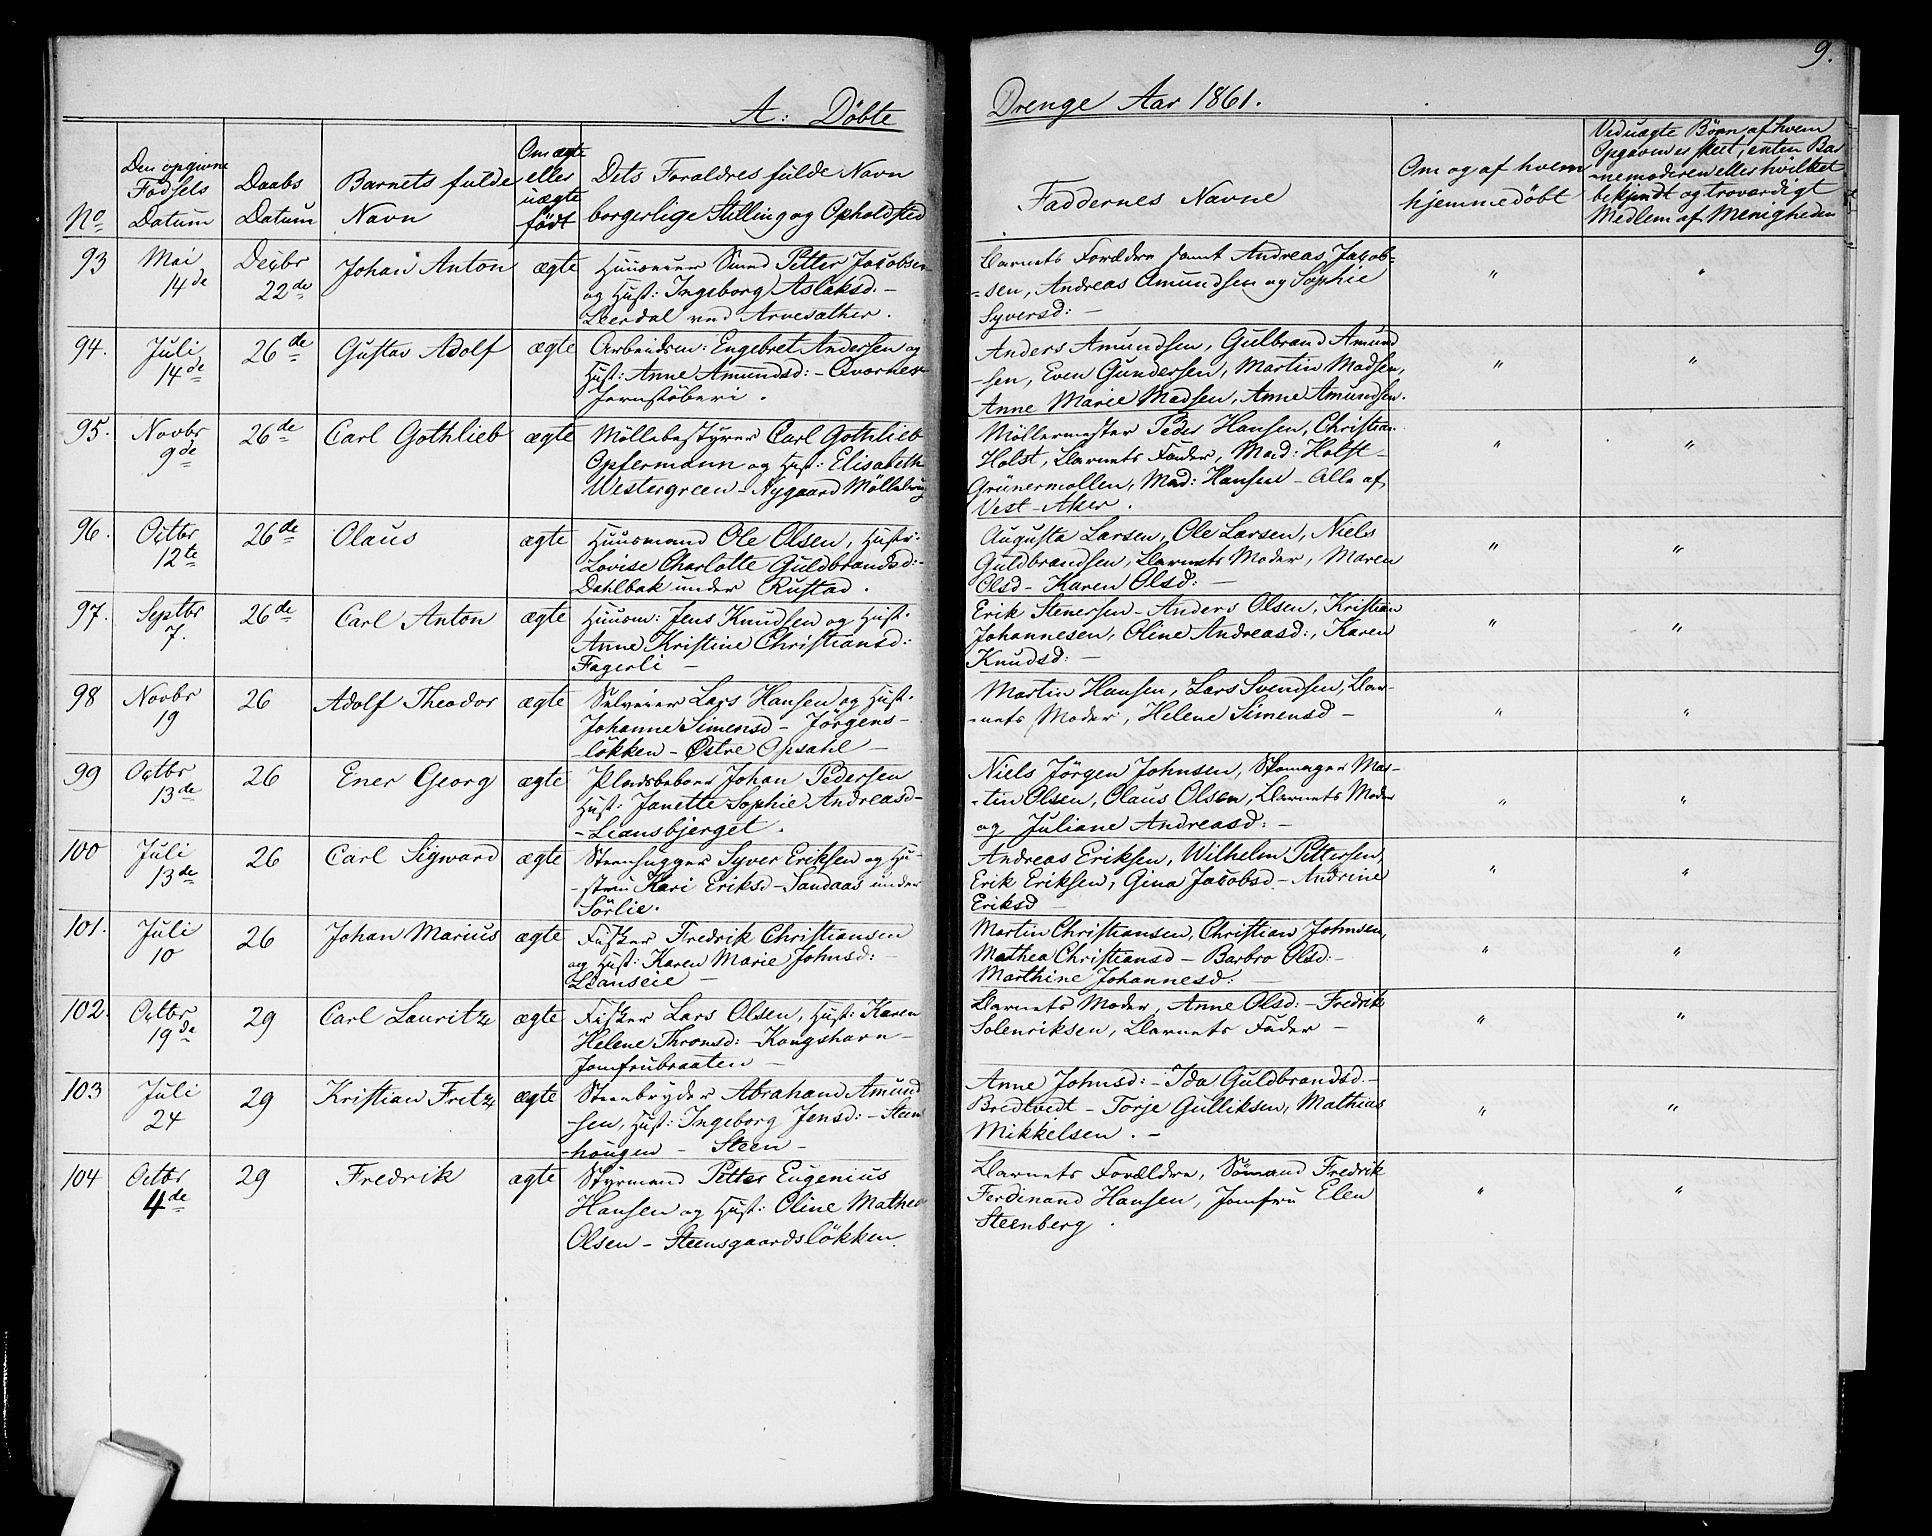 A: Döbte
Drenge Aar 1861.
9.
No
Den opgivne
Födsels
Datum
Daabs
Datum
Barnets fulde
Navn
Om ægte
eller
uægte
födt
Dets Foraldres fulde Navn
borgerlige Stilling og Opholdsted
Faddernes Navne
Om og af hvem
hjemmedöbt
Ved uægte Börn af hvem
Opgaven er skeet, enten Bar
-nemoderen eller hvilket
bekjendt og troværdigt
Medlem af Menigheden
93
Mai
14de
Decbr
22de
Johan Anton
ægte
Huuseier Smed Petter Jacobsen
og Hust: Ingeborg Aslaksd. -
ved Arvesæther.
Barnets Forældre samt Andreas Jacob-
-sen, Andreas Amundsen og Sophie
Syversd: -
"
"
94.
Juli
14de
26de
Gustav Adolf
ægte
Arbeidsm: Engebret Andersen og
Hust: Anne Amundsd: - Qværner
Jernstöberi.
Anders Amundsen, Gulbrand Amund
-sen, Even Gundersen, Martin Madsen,
Anne Marie Madsen, Anne Amundsen.
"
"
95.
Novbr
9de
26de
Carl Gothlieb
ægte
Möllebestyrer Carl Gothlieb
Opfermann og Hust: Elisabeth
Westergreen - Nygaard Möllebrug
Möllermester Peder Hansen, Christian
Holst, Barnets Fader, Mad: Holst -
Grünermollen, Mad: Hansen - Alle af
Vest-Aker.
"
"
96.
Octbr
12te
26de
Olaus
ægte
Huusmand Ole Olsen, Hustr:
Lovise Charlotte Guldbrandsd: -
Dahlbak under Rustad.
Augusta Larsen, Ole Larsen, Niels
Guldbrandsen, Barnets Moder, Maren
Olsd - Karen Olsd: -
"
"
97.
Septbr
7.
26de
Carl Anton
ægte
Huusm: Jens Knudsen og Hust:
Anne Kristine Christiansd:
Fagerli -
Erik Stenersen - Anders Olsen, Kristian
Johannesen, Oline Andreasd:, Karen
Knudsd: -
"
"
98
Novbr
19
26
Adolf Theodor
ægte
Selveier Lars Hansen og Hust:
Johanne Simensd - Jörgens-
-lökken - Østre Opsahl -
Martin Hansen, Lars Svendsen, Bar-
-nets Moder, Helene Simensd -
"
"
99
Octbr
13de
26
Ener Georg
ægte
Pladsbeboer Johan Pedersen
Hust: Janette Sophie Andreasd -
- Liansbjerget.
Niels Jörgen Johnsen, Skomager Mar-
-tin Olsen, Olaus Olsen, Barnets Moder
og Juliane Andreasd: -
"
"
100
Juli
13de
26
Carl Sigward
ægte
Steenhugger Syver Eriksen og Hu-
-stru Kari Eriksd - Sandaas under
Sörlie.
Andreas Eriksen, Wilhelm Pettersen,
Erik Eriksen, Gina Jacobsd - Andrine
Eriksd -
"
"
101.
Juli
10
26
Johan Marius
ægte
Fisker Fredrik Christiansen
og Hust: Karen Marie Johnsd: -
Lianseie -
Martin Christiansen, Christian Johnsen,
Mathea Christiansd - Barbro Olsd: -
Marthine Johannesd: -
"
"
102.
Octbr
19de
29
Carl Lauritz
ægte
Fisker Lars Olsen, Hust: Karen
Helene Thronsd: - Kongshavn -
Jomfrubraaten -
Barnets Moder, Anne Olsd: - Fredrik
Solenriksen, Barnets Fader -
"
"
103
Juli
24
29
Kristian Fritz
ægte
Steenbryder Abraham Amund
-sen, Hust: Ingeborg Jensd: - Steen
-hougen - Steen -
Anne Johnsd: - Ida Guldbrandsd. -
Bredtvedt - Torje Gulliksen, Mathias
Mikkelsen. -
"
"
104
Octbr
4de
29
Fredrik
ægte
Styrmand Petter Eugenius
Hansen og Hust: Oline Mathea
Olsen - Steensgaardslökken.
Barnets Forældre, Sömand Fredrik
Ferdinand Hansen, Jomfru Elen
Steenberg.
"
"